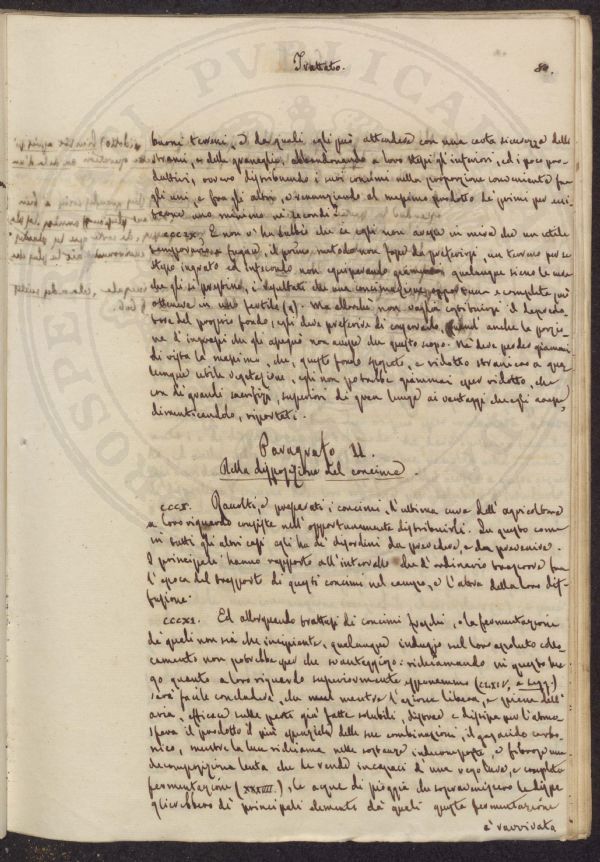 Trattato.
buoni terreni, e da quali egli può attendere con una certa sicurezza delle
strami, o delle granaglie, abbandonando a loro stessi gl'inferiori, ed i poco pro-
duttivi, ovvero distribuendo i suoi concimi nella proporzione conveniente fra
gli uni, e fra gli altri, e rinunziando al massimo prodotto de' primi per
uno maximo ne' secondi
cccix. E non v'ha dubbio che se egli non avesse in mira che un utile
temporaneo e fugace, il primo metodo non fosse da preferirsi, un terreno per se
stesso ingrato ed infecondo non equiparando giammai qualunque sieno le cure
che gli si prestino, i risultati che una concimazione copiosa e completa può
ottenere in uno fertile (a). Ma allorché non voglia contribuire al deperi-
re del proprio fondo, egli deve preferire di conservarlo, quand'anche la porzio-
ne d'ingrassi che gli assegni non avesse che questo scopo. Né deve perdere giammai
di vista la massima, che, questo fondo spossato, e ridotto straniero a qua-
lunque utile vegetazione, egli non potrebbe giammai esser ridotto, che
con di grandi sacrifizj, superiori di gran lunga ai vantaggi che essi
dimenticando, riportati.
Paragrafo II.
Della disposizione del concime.
cccx. Raccolti, e preparati i concimi, l'ultima cura dell'agricoltore
a loro riguardo consiste nell'opportunamente distribuirli. In questo come
in tutti gli altri casi egli ha de' disordini da prevedere e da prevenire.
I principali hanno rapporto all'intervallo che d'ordinario trascorre fra
l'epoca del trasporto di questi concimi nel campo, e l'altra della loro dif-
fusione.
cccxi. Ed allorquando trattasi di concimi freschi, o la fermentazione
de' quali non sia che incipiente, qualunque indugio nel loro assoluto
non potrebbe esser che svantaggioso: richiamando in questo luo-
go quanto a loro riguardo superiormente esponemmo (CCXIV, e segg.)
sarà facile concludere, che mentre l'azione libera, e piena dell'
aria, efficace sulle parti già fatte solubili, disperde e dissipa per l'atmo-
sfera il prodotto il più essenziale delle sue combinazioni, il gas acido carbo-
nico, mentre la luce richiama nelle sostanze indecomposte, e fibrose una
decomposizione lenta che le rende incapaci d'una regolare, e completa
fermentazione (XXXVIII), le acque di pioggia che sopravvenissero le dispo-
glierebbero de' principali elementi da' quali questa fermentazione
è ravvivata